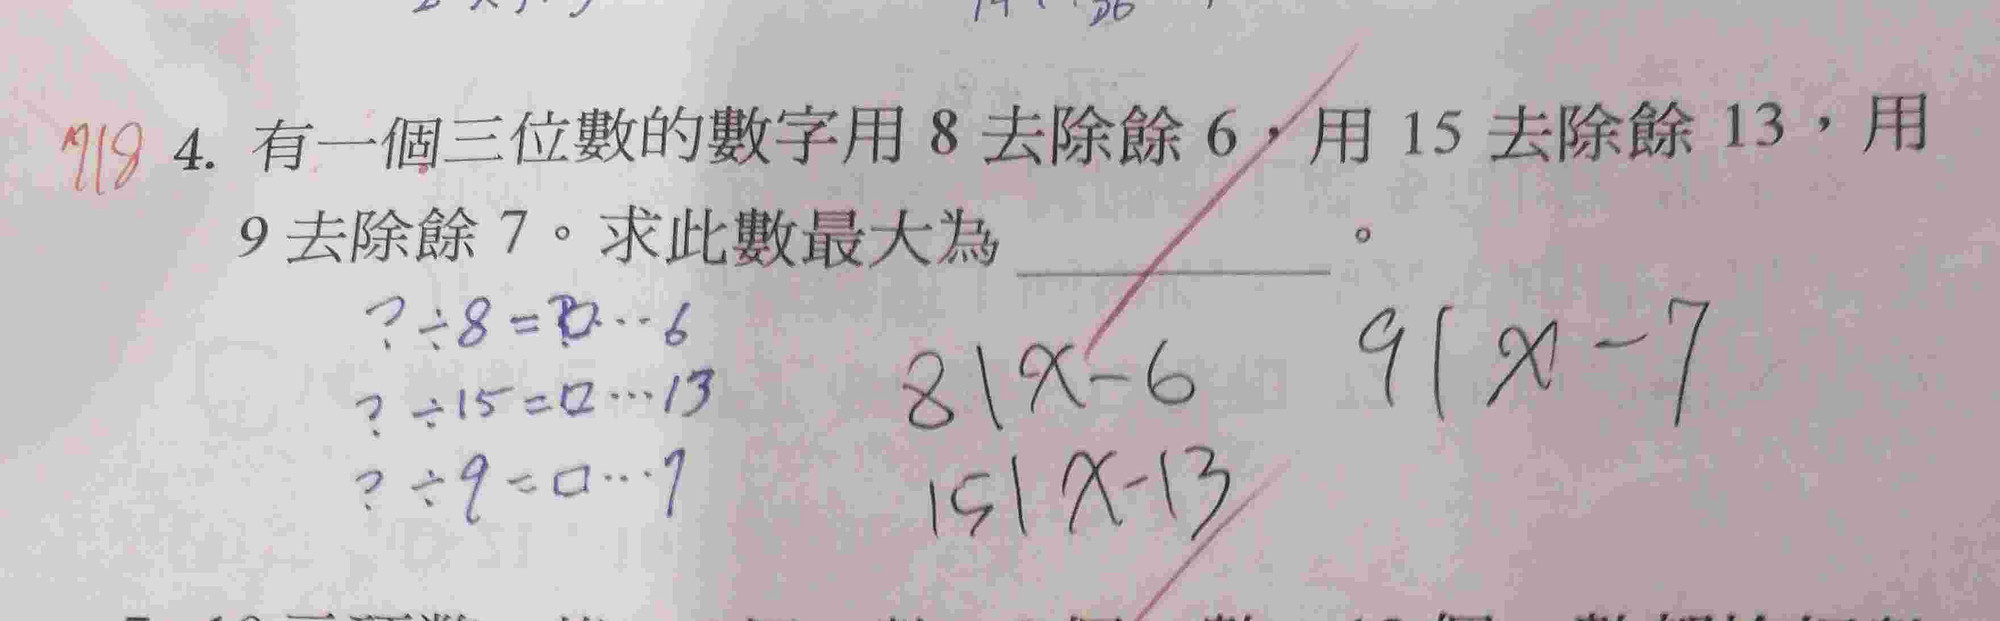 718 4. 有一個三位數的數字用 8 去除餘 6，用 15 去除餘 13，用
9 去除餘 7。求此數最大為 ＿＿＿＿＿。
?÷8=□…6
?÷15=□…13
?÷9=□…7
8|x-6
15|x-13
9|x-7